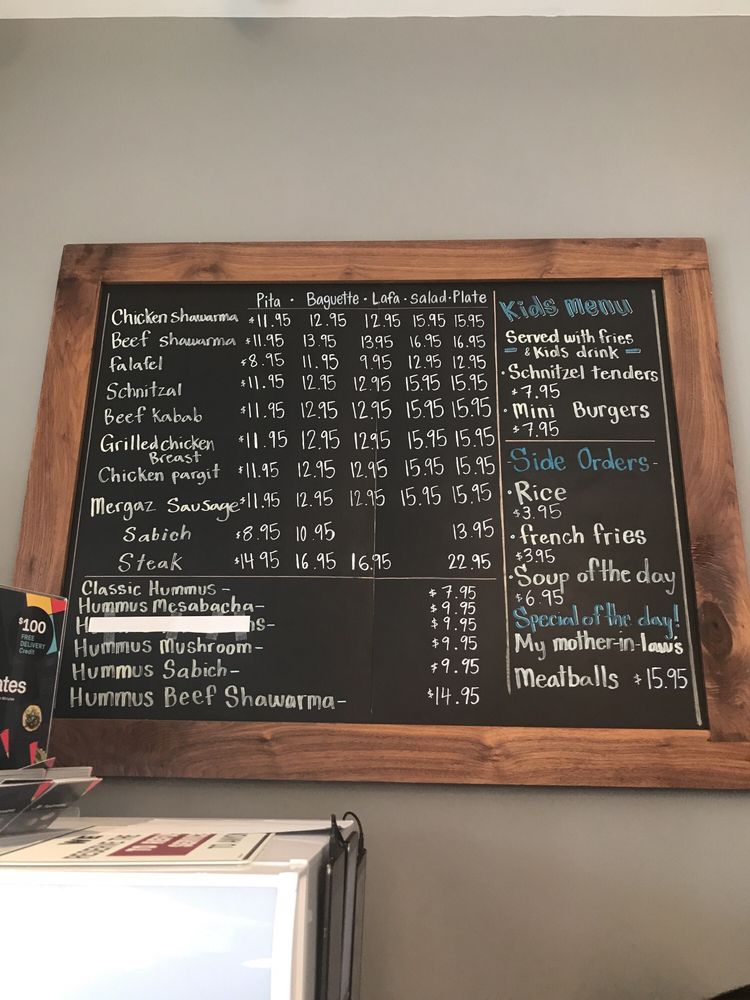 Pita · Baguette · Lafa · Salad · Plate
Chicken Shawarma $11.95 12.95 12.95 15.95 15.95
Beef shawarma $11.95 13.95 13.95 16.95 16.95
falafel $8.95 11.95 9.95 12.95 12.95
Schnitzal $11.95 12.95 12.95 15.95 15.95
Beef Kabab $11.95 12.95 12.95 15.95 15.95
Grilled chicken Breast $11.95 12.95 12.95 15.95 15.95
Chicken pargit $11.95 12.95 12.95 15.95 15.95
Mergaz Sausage $11.95 12.95 12.95 15.95 15.95
Sabich $8.95 10.95 13.95
Steak $14.95 16.95 16.95 22.95
Classic Hummus - $7.95
Hummus Mesabacha - $9.95
H ns - $9.95
Hummus Mushroom - $9.95
Hummus Sabich - $9.95
Hummus Beef Shawarma - $14.95
Kids Menu
Served with fries
& Kids drink
· Schnitzel tenders
$7.95
· Mini Burgers
$7.95
- Side Orders -
· Rice
$3.95
· french fries
$3.95
· Soup of the day
$6.95
Special of the day!
My mother-in-law's
Meatballs $15.95
$100
FREE
DELIVERY
Credit
ates
WE
RESERVE THE